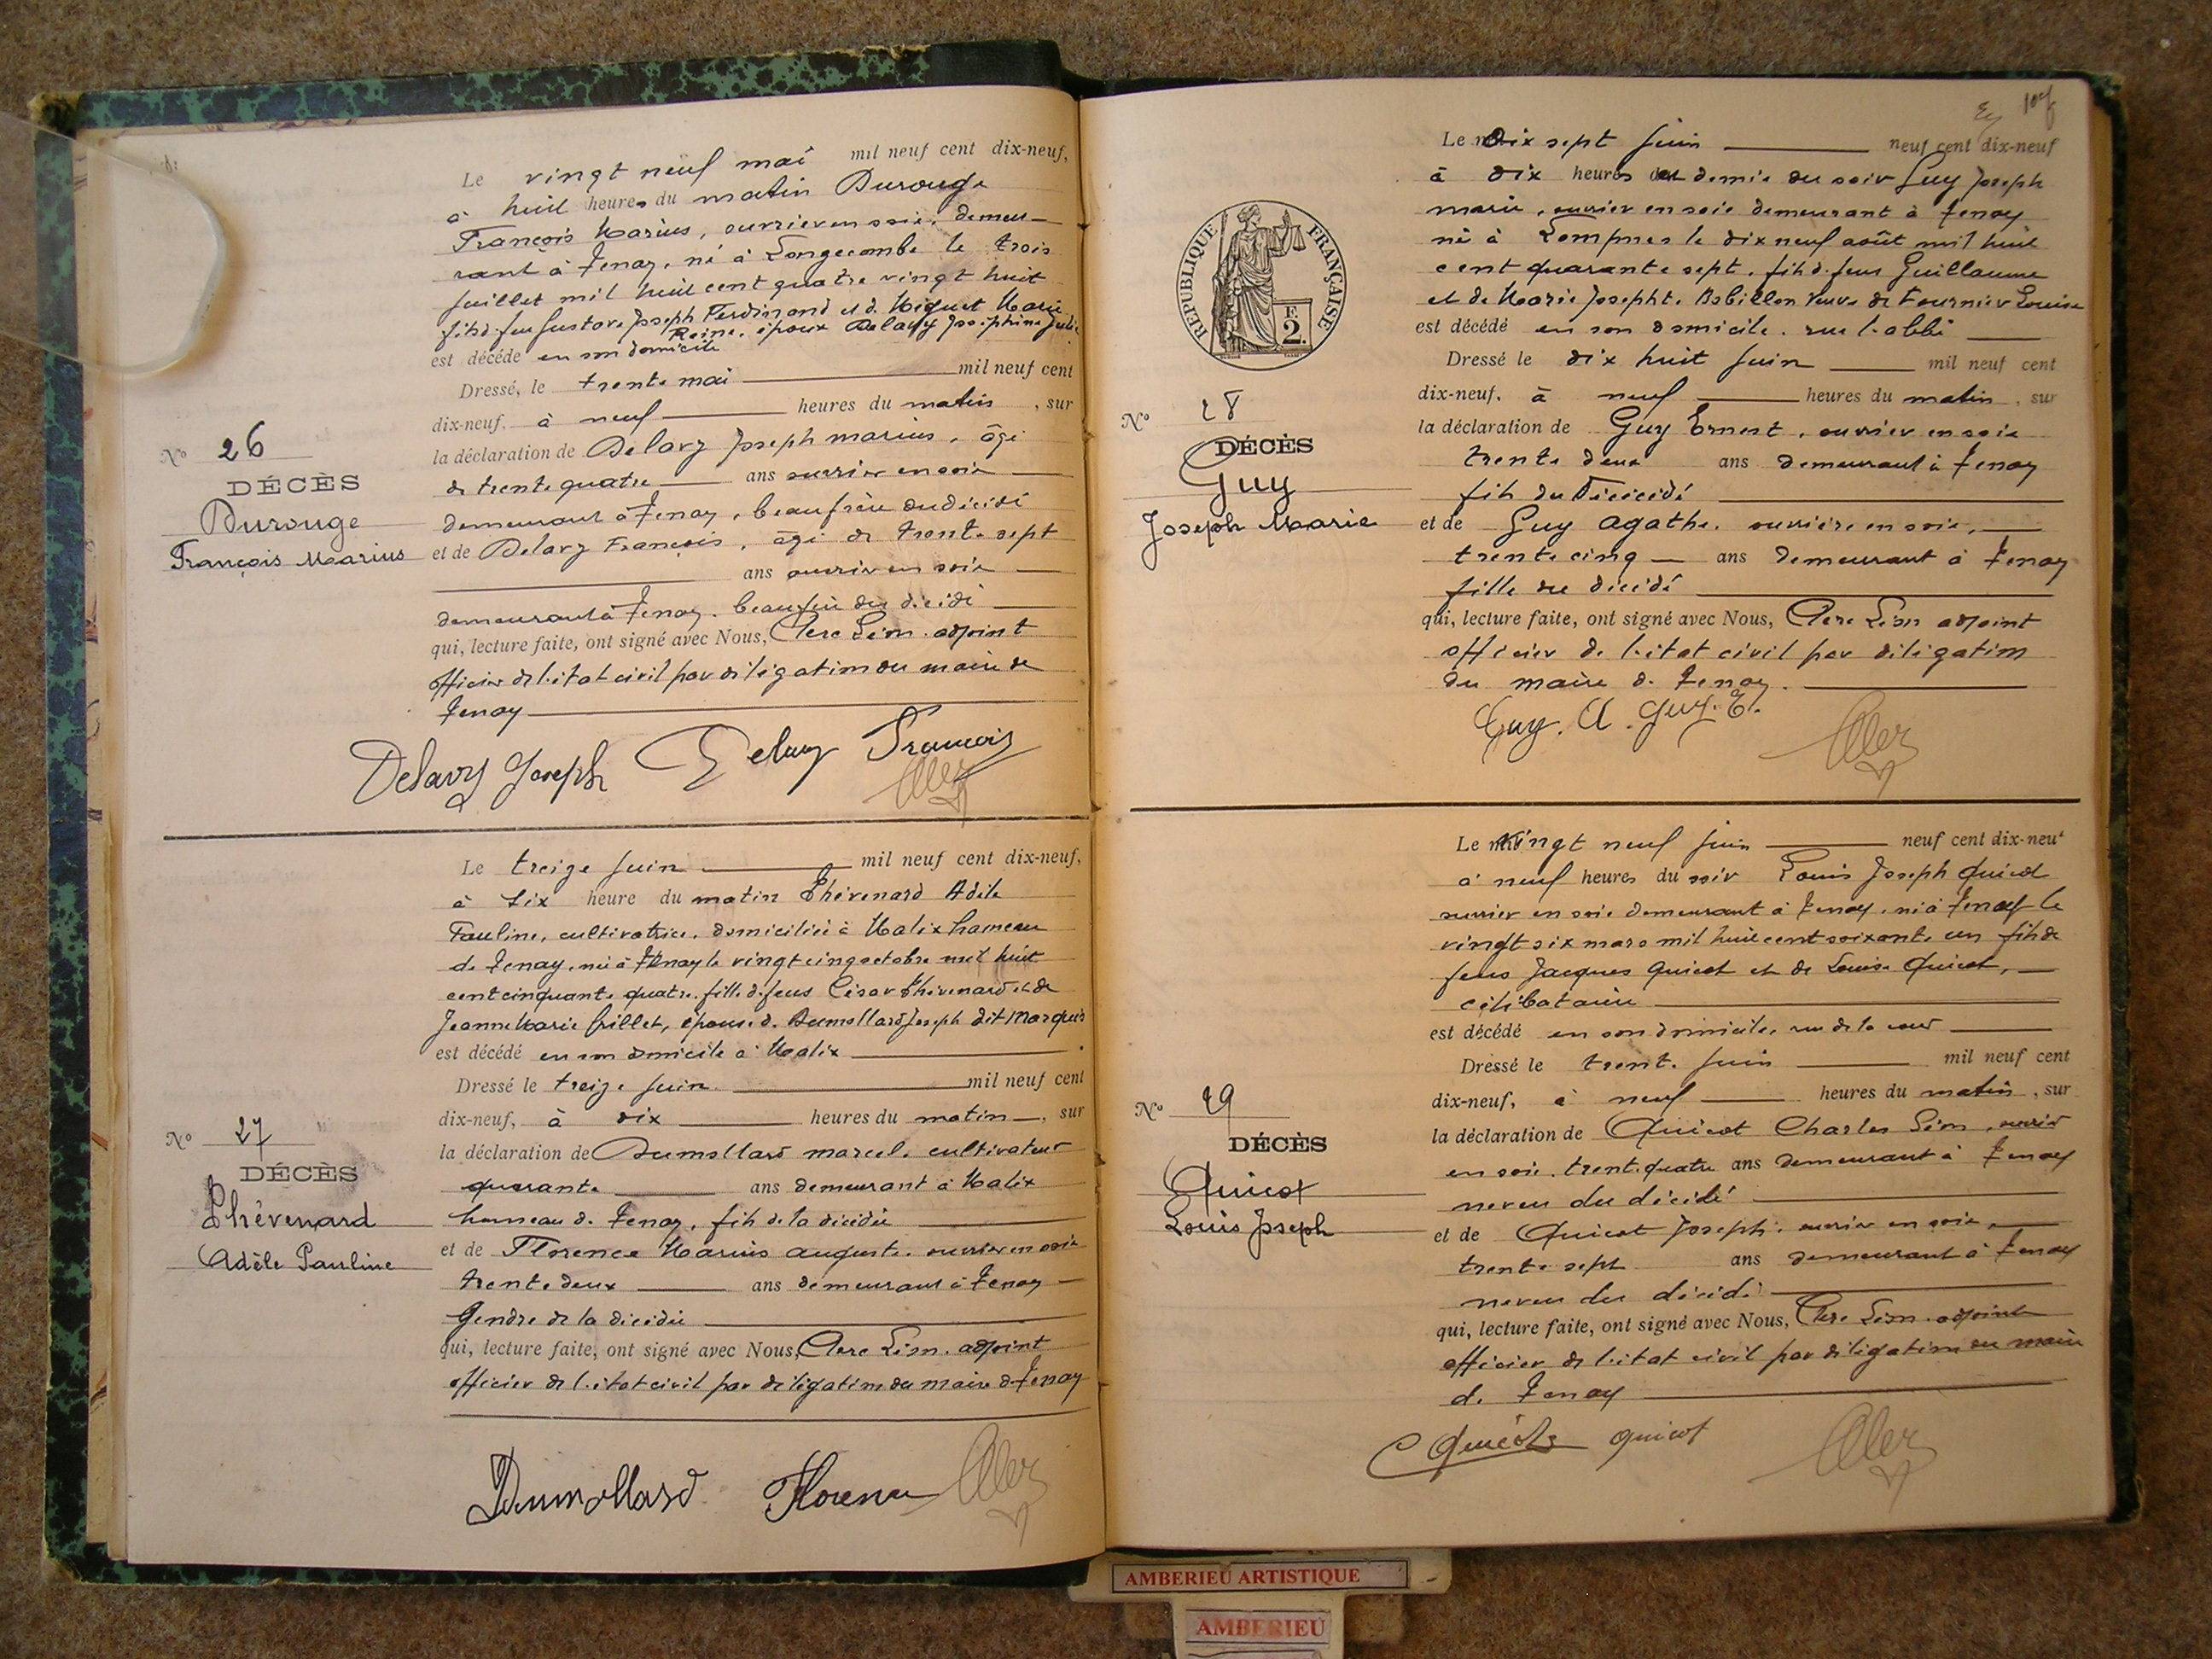 Le vingt neuf mai mil neuf cent dix-neuf,
à huit heures du matin Durouge
François Marius, ouvrier en soie, demeu-
rant à Tenay, né à Longecombe le trois
juillet mil huit cent quatre vingt huit
fils d. feu Gustave Joseph Ferdinand et d. Miguet Marie
Reine, époux Delavy Joséphine Julie
est décédé en son domicile
Dressé, le trente mai mil neuf cent
dix-neuf, à neuf heures du matin, sur
la déclaration de Delavy Joseph marius, âgé
de trente quatre ans ouvrier en soie
demeurant à Tenay, beau frère du décédé
et de Delavy François, âgé de trente sept
ans ouvrier en soie
demeurant à Tenay. beau frère du décédé
qui, lecture faite, ont signé avec Nous, Clerc Léon. adjoint
officier de l'état civil par délégation du maire de
Tenay
Delavy Joseph Delavy François
Clerc
No 26
DÉCÈS
Durouge
François Marius
Le treize juin mil neuf cent dix-neuf,
à six heure du matin Thévenard Adèle
Pauline, cultivatrice, domiciliée à Malix hameau
de Tenay, née à Tenay le vingt cinq octobre mil huit
cent cinquante quatre, fille de feus César Thévenard et de
Jeanne Marie Grillet, épouse d. Dumollard Joseph dit Marquis
est décédé en son domicile à Malix
Dressé le treize juin mil neuf cent
dix-neuf, à dix heures du matin, sur
la déclaration de Dumollard marcel, cultivateur
quarante ans demeurant à Malix
hameau d. Tenay, fils de la décédée
et de Florence Marius auguste, ouvrier en soie
trente deux ans demeurant à Tenay
gendre de la décédée
qui, lecture faite, ont signé avec Nous, Clerc Léon. adjoint
officier de l'état civil par délégation du maire d Tenay
Dumollard Florence Clerc
No 27
DÉCÈS
Thévenard
Adèle Pauline
Le Dix sept juin neuf cent dix-neuf
à dix heures et demie du soir Guy Joseph
marie, ouvrier en soie demeurant à Tenay
né à Lompnes le dix neuf août mil huit
cent quarante sept, fils d. feus Guillaume
et de Marie Josepht. Babillon veuve de Fournier Louise
est décédé en son domicile, rue l'abbé
Dressé le dix huit juin mil neuf cent
dix-neuf, à neuf heures du matin, sur
la déclaration de Guy Ernest, ouvrier en soie
trente deux ans demeurant à Tenay
fils du Décédé
et de Guy agathe, ouvrière en soie,
trente cinq ans demeurant à Tenay
fille du décédé
qui, lecture faite, ont signé avec Nous, Clerc Léon adjoint
officier de l'état civil par délégation
du maire d. Tenay.
Guy. A. Guy. E. Clerc
RÉPUBLIQUE FRANÇAISE
2.
No 28
DÉCÈS
Guy
Joseph Marie
Le Vingt neuf juin neuf cent dix-neuf
à neuf heures du soir Louis Joseph Quicot
ouvrier en soie demeurant à Tenay, né à Tenay le
vingt six mars mil huit cent soixante un fils de
feus Jacques Quicot et de Louise Quicot,
célibataire
est décédé en son domicile, rue de la cour
Dressé le trente juin mil neuf cent
dix-neuf, à neuf heures du matin, sur
la déclaration de Quicot Charles Léon, ouvrier
en soie, trente quatre ans demeurant à Tenay
neveu du décédé
et de Quicot Joseph, ouvrier en soie,
trente sept ans demeurant à Tenay
neveu du décédé
qui, lecture faite, ont signé avec Nous, Clerc Léon. adjoint
officier de l'état civil par délégation du maire
d. Tenay
Quicot quicot Clerc
No 29
DÉCÈS
Quicot
Louis Joseph
AMBERIEU ARTISTIQUE
AMBERIEU